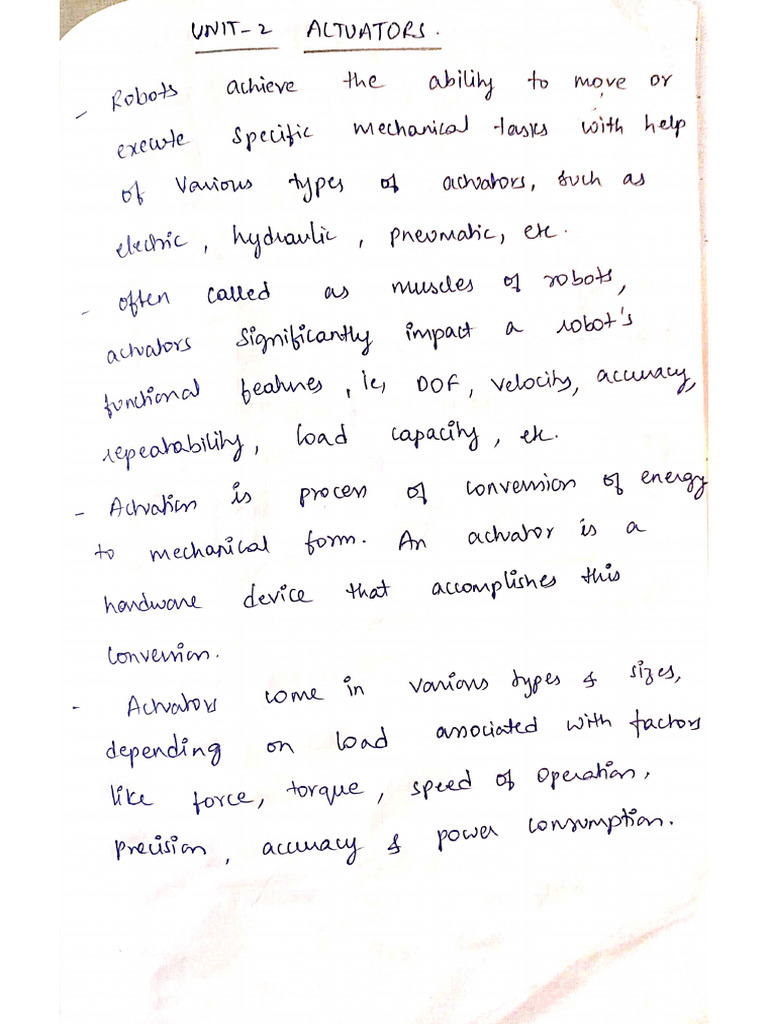 UNIT-2 ACTUATORS.
- Robots achieve the ability to move or
execute specific mechanical tasks with help
of various types of actuators, such as
electric, hydraulic, pneumatic, etc.
- often called as muscles of robots,
actuators significantly impact a robot's
functional features, ie, DOF, velocity, accuracy,
repeatability, load capacity, etc.
- Actuation is process of conversion of energy
to mechanical form. An actuator is a
hardware device that accomplishes this
conversion.
- Actuators come in various types & sizes,
depending on load associated with factors
like force, torque, speed of operation,
precision, accuracy & power consumption.